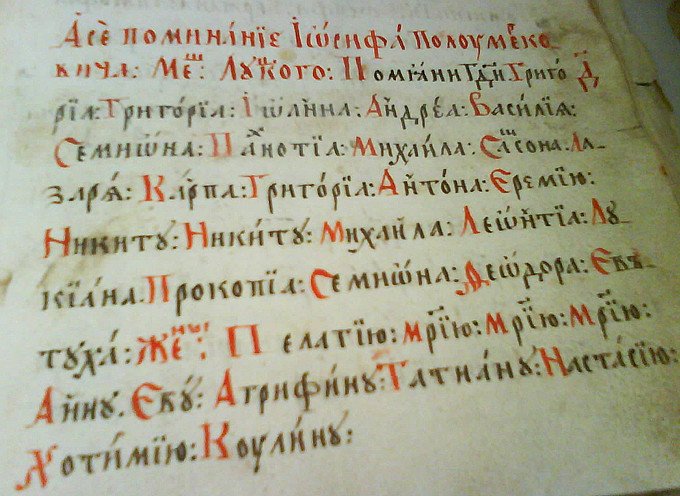 Асе поминаніе Іѡсифа полоумеко
вича: Ме҃ш: Луц҃кого: Помѧни Гд҃и Григо
рїа: Григорїа: Іѡанна: Андреа: Василїа:
Семиѡна: Паѳнотїа: Михаила: Самсона: Ла_
заря: Карпа: Григорїа: Антона: Еремїю:
Никиту: Никиту: Михаила: Леѡнтїа: Лу_
кїана. Прокопїа: Семиѡна: Ѳеѡдора: Еву_
туха: Пелагїю: мр҃їю: мр҃їю: мр҃їю:
Анну. Еву: Агрифину: Татиану: Настасїю:
Хотимїю: Коулину: